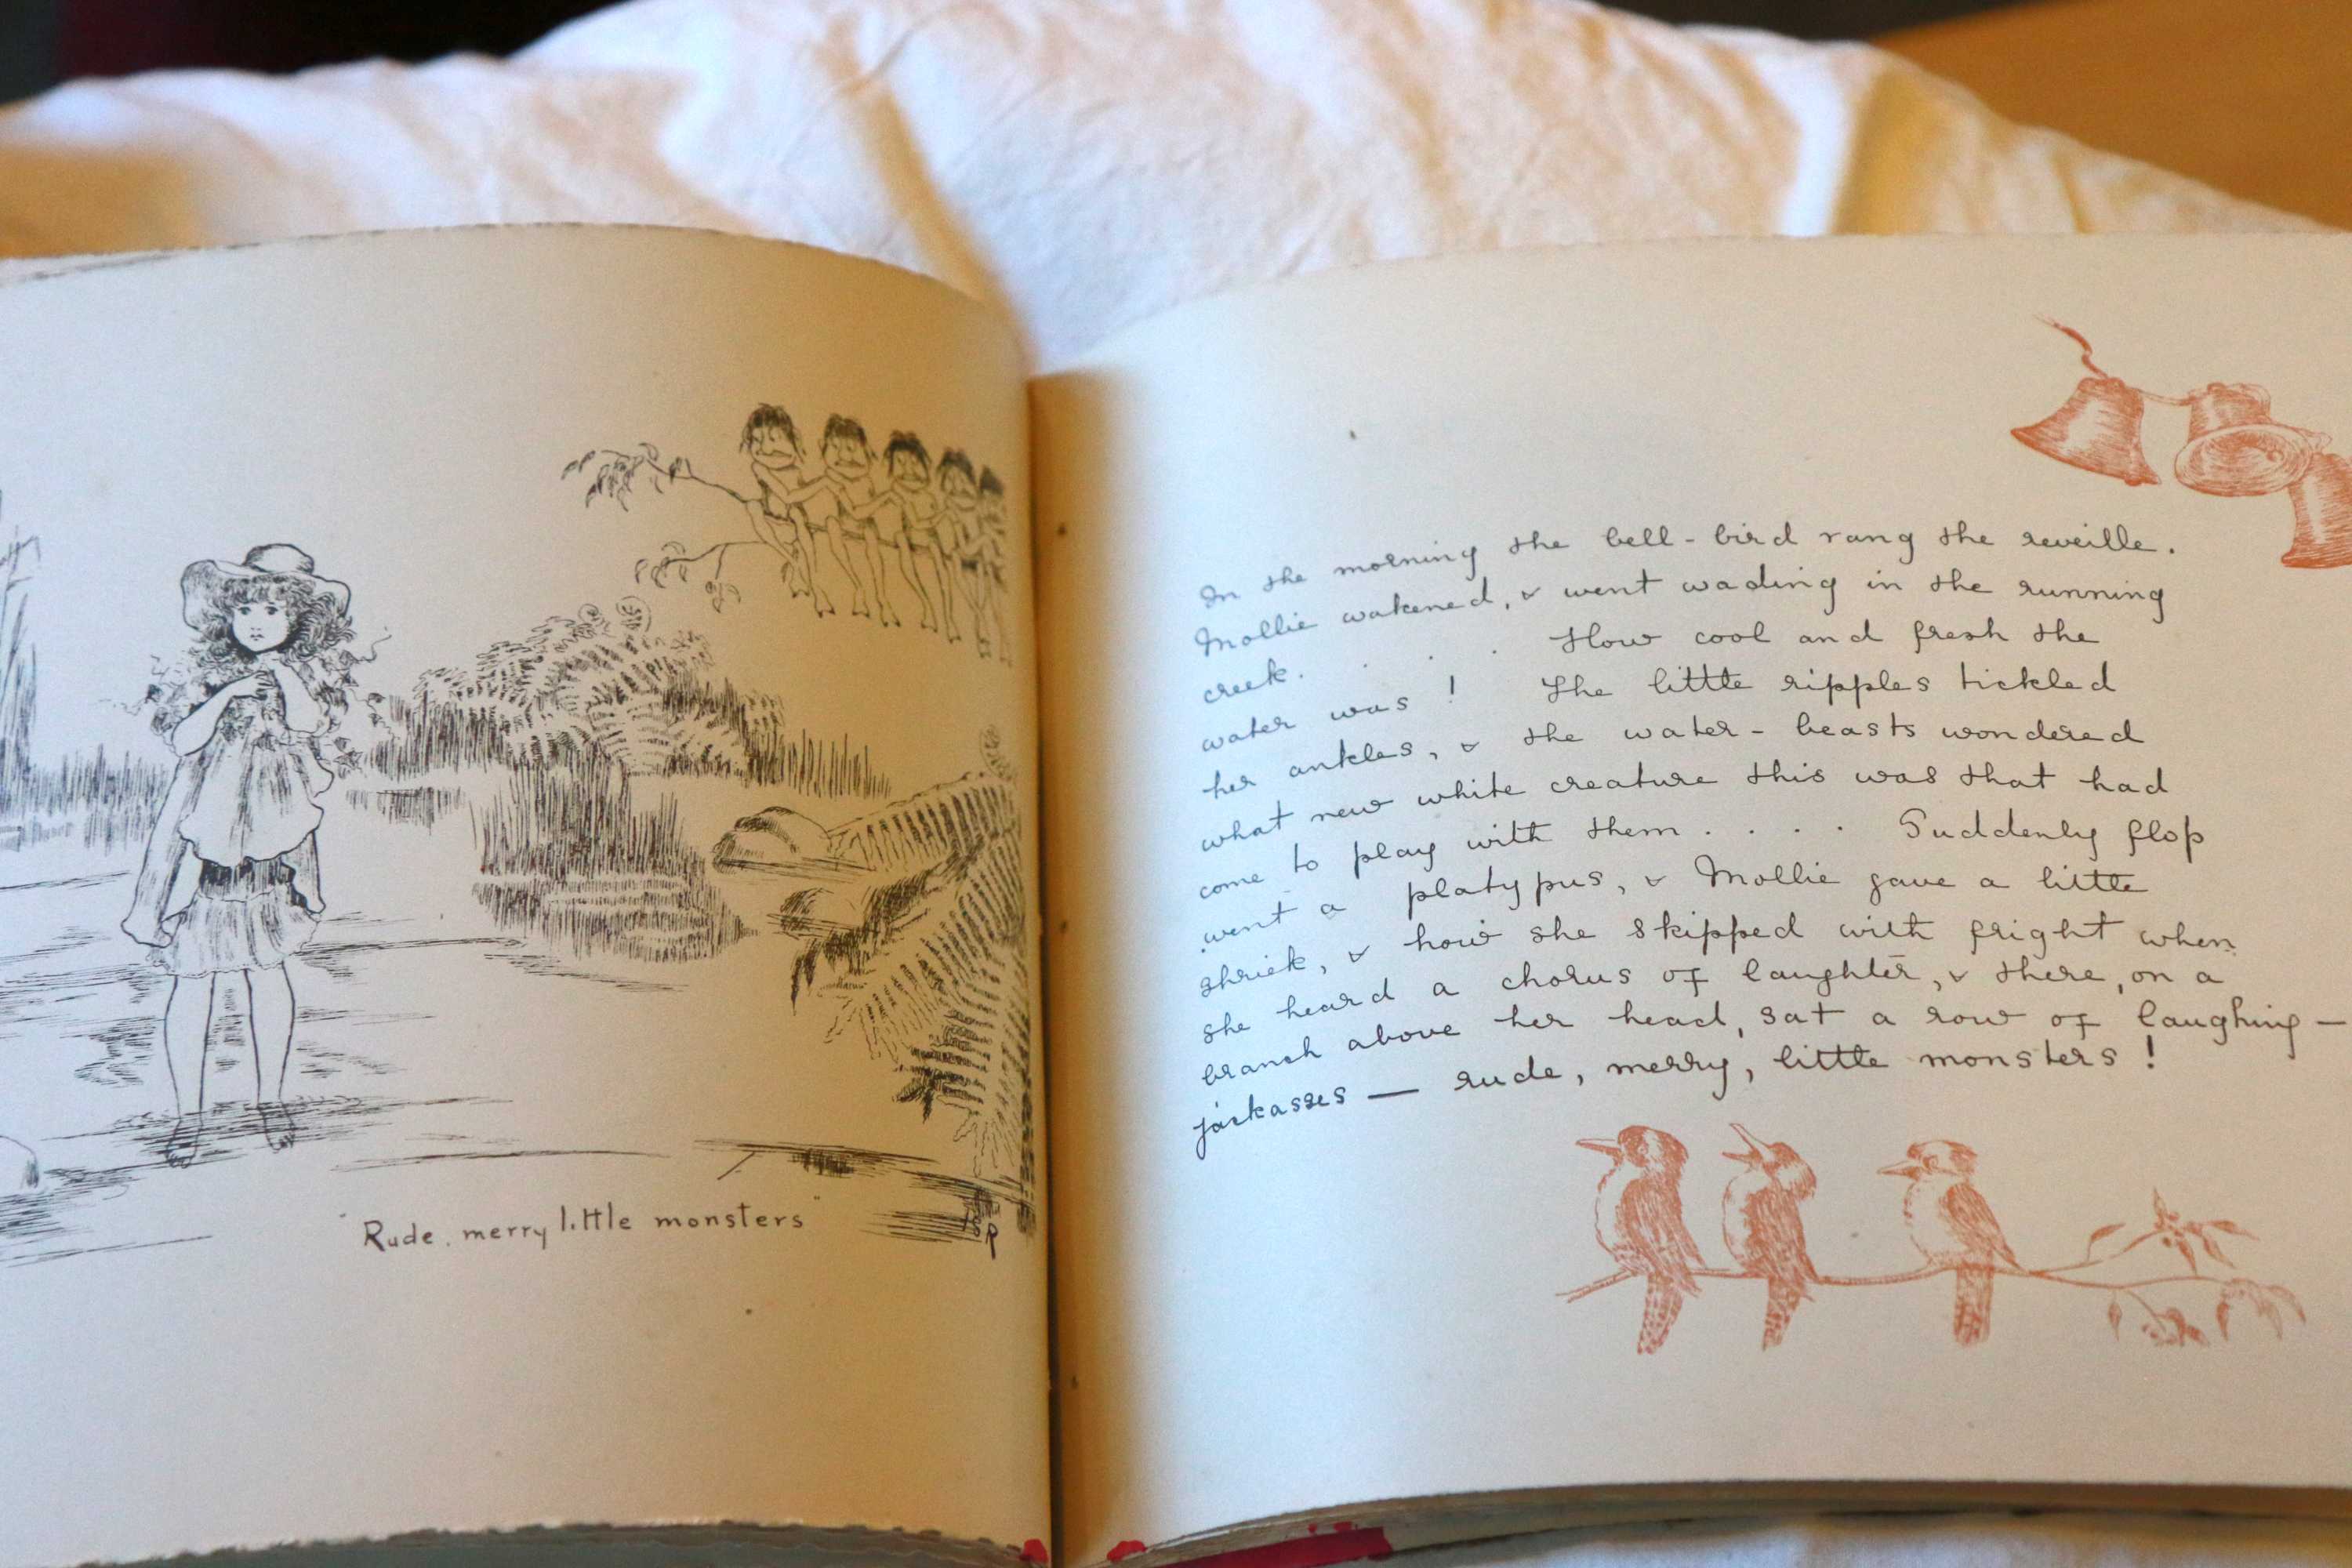 "Rude, merry little monsters"
R
In the morning the bell-bird rang the reveille.
Mollie wakened, & went wading in the running
creek. . . . How cool and fresh the
water was! The little ripples tickled
her ankles, & the water-beasts wondered
what new white creature this was that had
come to play with them . . . . Suddenly flop
went a platypus, & Mollie gave a little
shriek, & how she skipped with fright when
she heard a chorus of laughter, & there, on a
branch above her head, sat a row of laughing-
jackasses — rude, merry, little monsters!